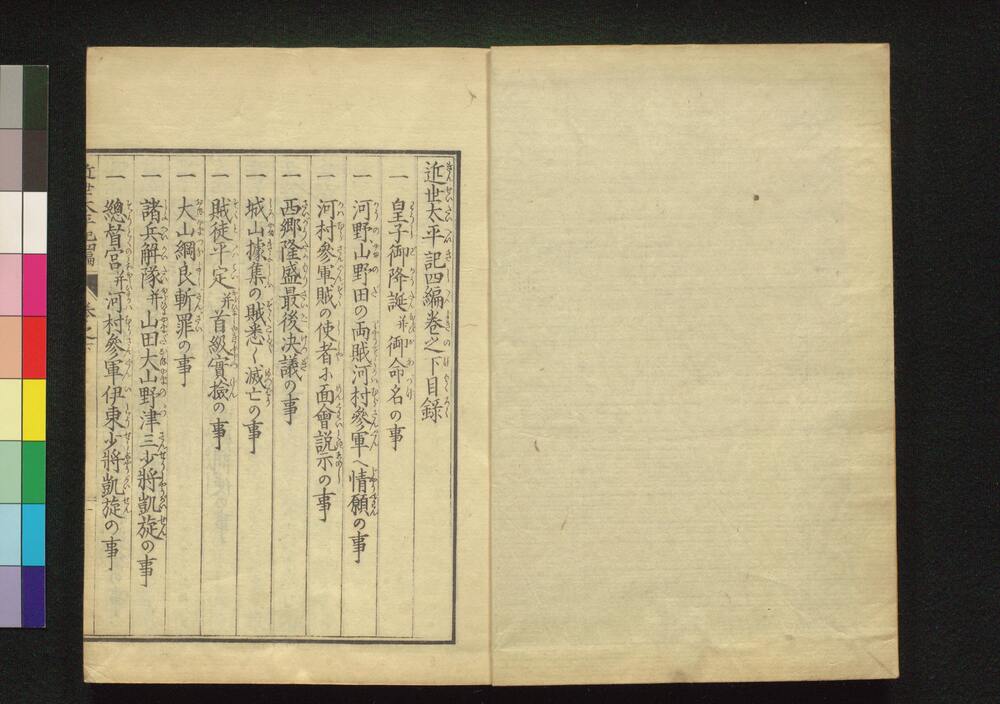 近世太平記四編巻之下目録
一 皇子御降誕并御命名の事
一 河野山野田の両賊河村參軍へ情願の事
一 河村參軍賊の使者に面會説示の事
一 西郷隆盛最後决議の事
一 城山據集の賊悉く滅亡の事
一 賊徒平定并首級實撿の事
一 大山綱良斬罪の事
一 諸兵解隊并山田大山野津三少將凱旋の事
一 總督宮并河村參軍伊東少將凱旋の事
近世太平記四編 巻之下